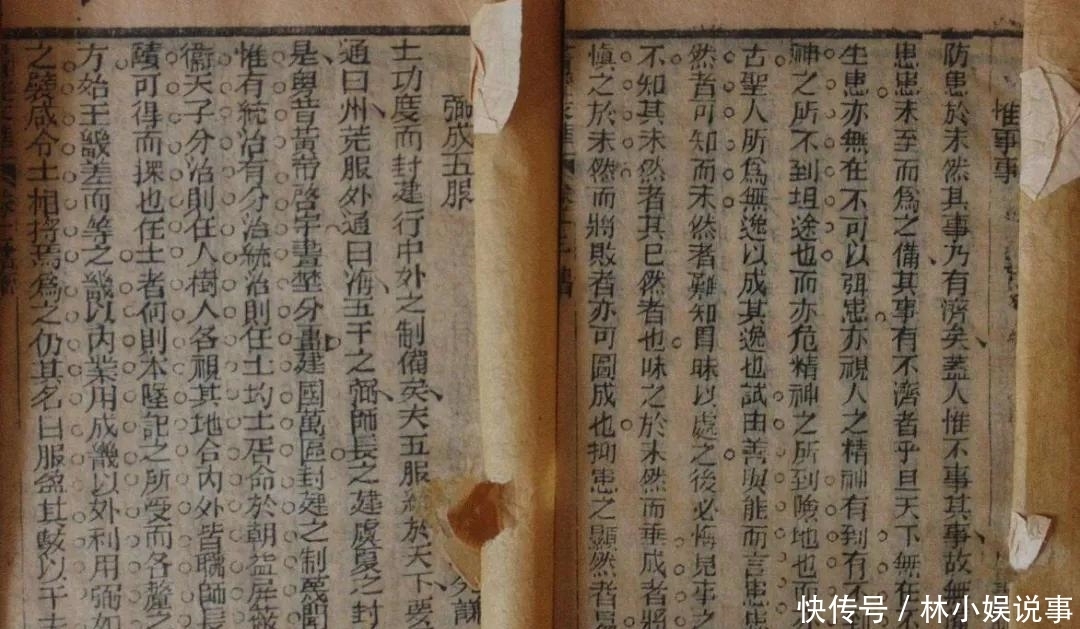 惟事事
防患於未然其事乃有濟矣蓋人惟不事其事故無
患患未至而爲之備其事有不濟者乎且天下無在
生患亦無在不可以弭患亦視人之精神有到有
神之所不到坦途也而亦危精神之所到險地也而
古聖人所爲無逸以成其逸也試由善與能而言患
然者可知而未然者難知冒昧以處之後必悔見事之
不知其未然者其已然者也昧之於未然而垂成者將
慎之於未然而將敗者亦可圖成也抑患之顯然者
弼成五服
土功度而封建行中外之制備矣夫五服統於天下要
通曰州荒服外通曰海五千之弼師長之建虞夏之封
是粵昔黃帝啓宇畫埜分畺建國萬區封建之制
惟有統治有分治統治則任土均土居命於朝益屏
衞天子分治則任人樹人各視其地合內外皆職師長
賾可得而探也在土者何則本墬記之所受而各釐之
方始王畿差而等之畿以內業用成畿以外利用弼如
之 咸令土相 焉爲之仍其名曰服
快传号 / 林小娱说事